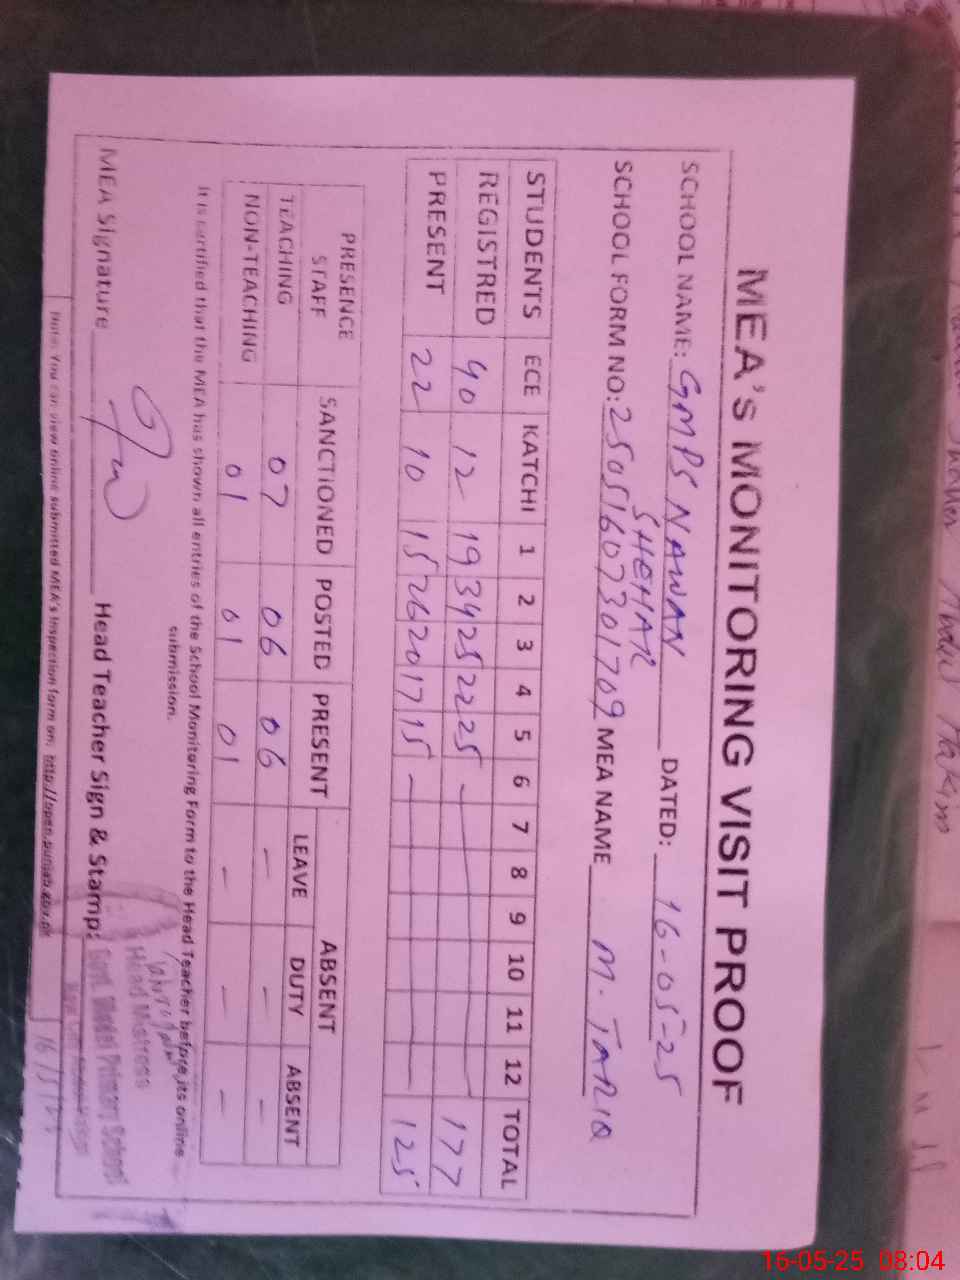 MEA's MONITORING VISIT PROOF
SCHOOL NAME: GMPS NAWAN SHEHAR DATED: 16-05-25
SCHOOL FORM NO: 25051607301709 MEA NAME M. TARIQ
STUDENTS ECE KATCHI 1 2 3 4 5 6 7 8 9 10 11 12 TOTAL
REGISTRED 40 12 19 34 25 22 25 — 177
PRESENT 22 10 15 26 20 17 15 — 125
PRESENCE STAFF SANCTIONED POSTED PRESENT ABSENT
LEAVE DUTY ABSENT
TEACHING 07 06 06 — — —
NON-TEACHING 01 01 01 — — —
It is certified that the MEA has shown all entries of the School Monitoring Form to the Head Teacher before its online
submission.
MEA Signature Head Teacher Sign & Stamp:
Head Mistress
Govt. Model Primary School
Note: You can view online submitted MEA's Inspection form on: http://open.punjab.gov.pk
16-05-25 08:04